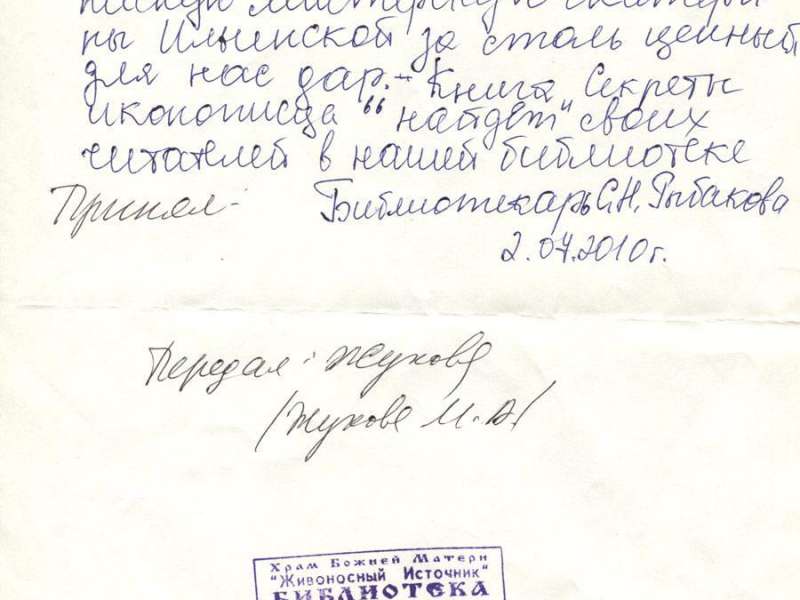 писную мастерскую Екатери
ны Ильинской за столь ценный
для нас дар. - Книга Секреты
иконописца "найдет" своих
читателей в нашей библиотеке
Принял - Библиотекарь С.Н. Рыбакова
2.04.2010г.
Передал: Жукова
/Жукова М.А/
Храм Божией Матери
"Живоносный Источник"
БИБЛИОТЕКА